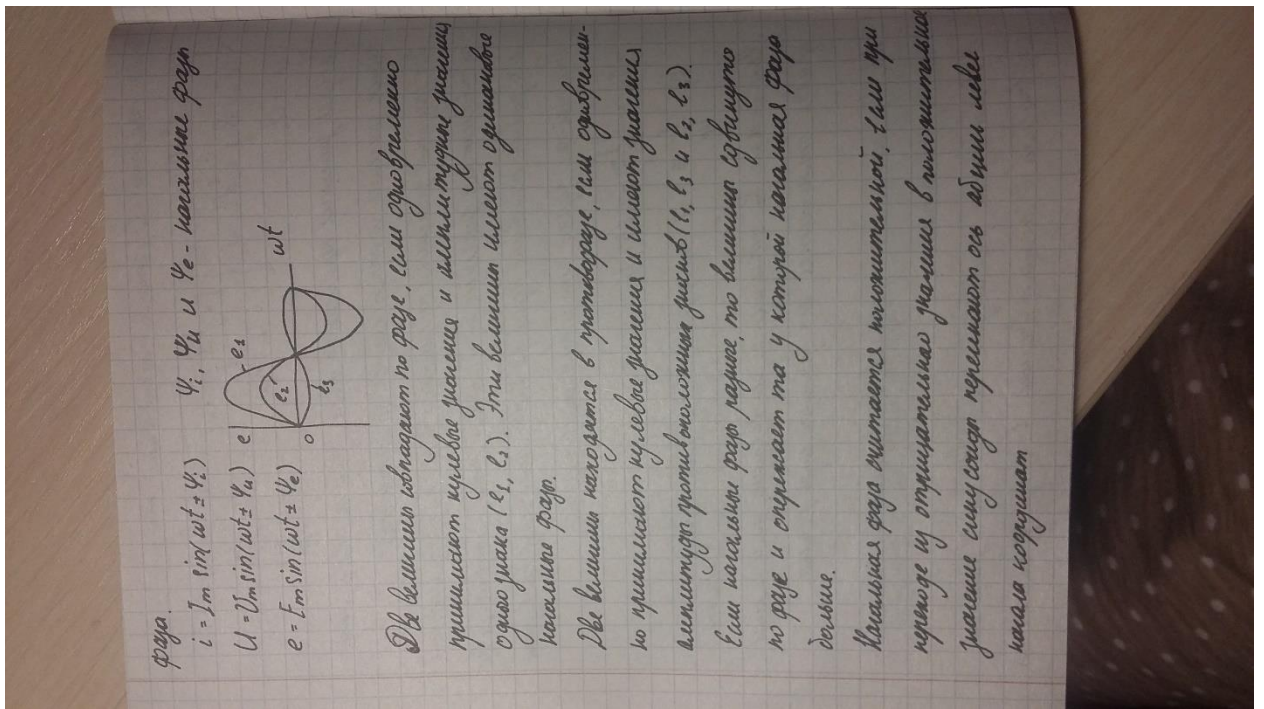 фаза.
i = Im sin(ωt ± Ψi) Ψi, Ψu и Ψe - начальные фазы
U = Um sin(ωt ± Ψu)
e = Em sin(ωt ± Ψe)
e
e1
e2
e3
0
ωt
Две величины совпадают по фазе, если одновременно
принимают нулевые значения и амплитудные значения
одного знака (e1, e2). Эти величины имеют одинаковые
начальные фазы.
Две величины находятся в противофазе, если одновремен-
но принимают нулевые значения и имеют значения
амплитуды противоположных знаков (e1, e3 и e2, e3).
Если начальные фазы разные, то величины сдвинуты
по фазе и опережает та у которой начальная фаза
больше.
Начальная фаза считается положительной, если при
переходе из отрицательного значения в положительное
значение синусоиды пересекают ось абцисс левее
начала координат